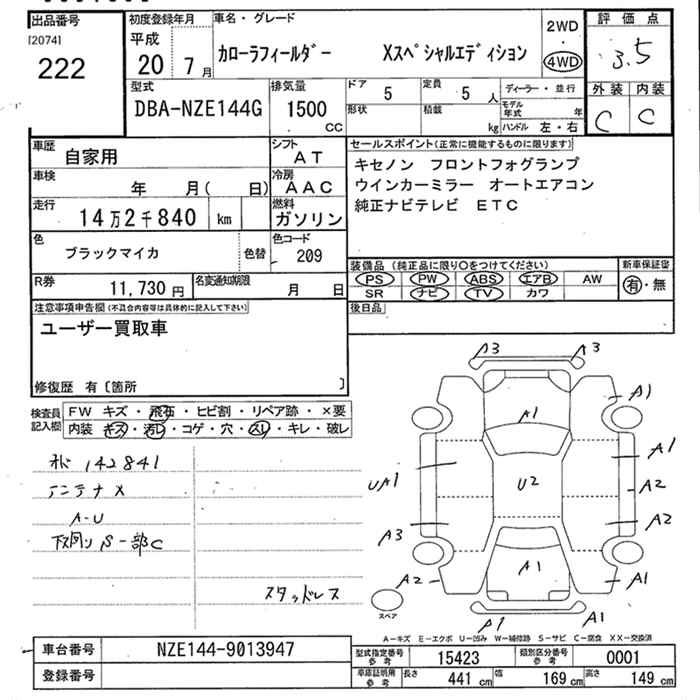 出品番号
[2074]
222
初度登録年月
平成
20 7月
車名・グレード
カローラフィールダー Xスペシャルエディション
2WD
・
4WD
評価点
3.5
外装 内装
C C
型式
DBA-NZE144G
排気量
1500
CC
ドア 5
定員 5人
形状
積載 kg
ディーラー・並行
モデル年式 年
ハンドル 左・右
車歴 自家用
シフト AT
車検 年 月( 日)
冷房 AAC
走行 14万2千840 km
燃料 ガソリン
色 ブラックマイカ
色替
色コード 209
R券 11,730円
名変通知期限 月 日
セールスポイント(正常に機能するものに限ります)
キセノン フロントフォグランプ
ウインカーミラー オートエアコン
純正ナビテレビ ETC
装備品(純正品に限り○をつけてください)
PS PW ABS エアB AW
SR ナビ TV カワ
新車保証書
有・無
後日品
注意事項申告欄(不具合内容等は具体的に記入して下さい)
ユーザー買取車
修復歴 有〔箇所 〕
検査員記入欄
FW キズ・飛石・ヒビ割・リペア跡・×要
内装 キズ・汚レ・コゲ・穴・スレ・キレ・破レ
142841
アンテナX
A-U
下回りS一部C
スタッドレス
A3 A3
A1
A1
A1
UA1
U2
A2
A3
A2
A2
A1
A1
A1
スペア
A1
A－キズ E－エクボ U－凹み W－補修跡 S－サビ C－腐食 XX－交換済
車台番号 NZE144-9013947
登録番号
型式指定番号参考 15423
類別区分番号参考 0001
車庫証明用参考 長さ 441 cm 幅 169 cm 高さ 149 cm